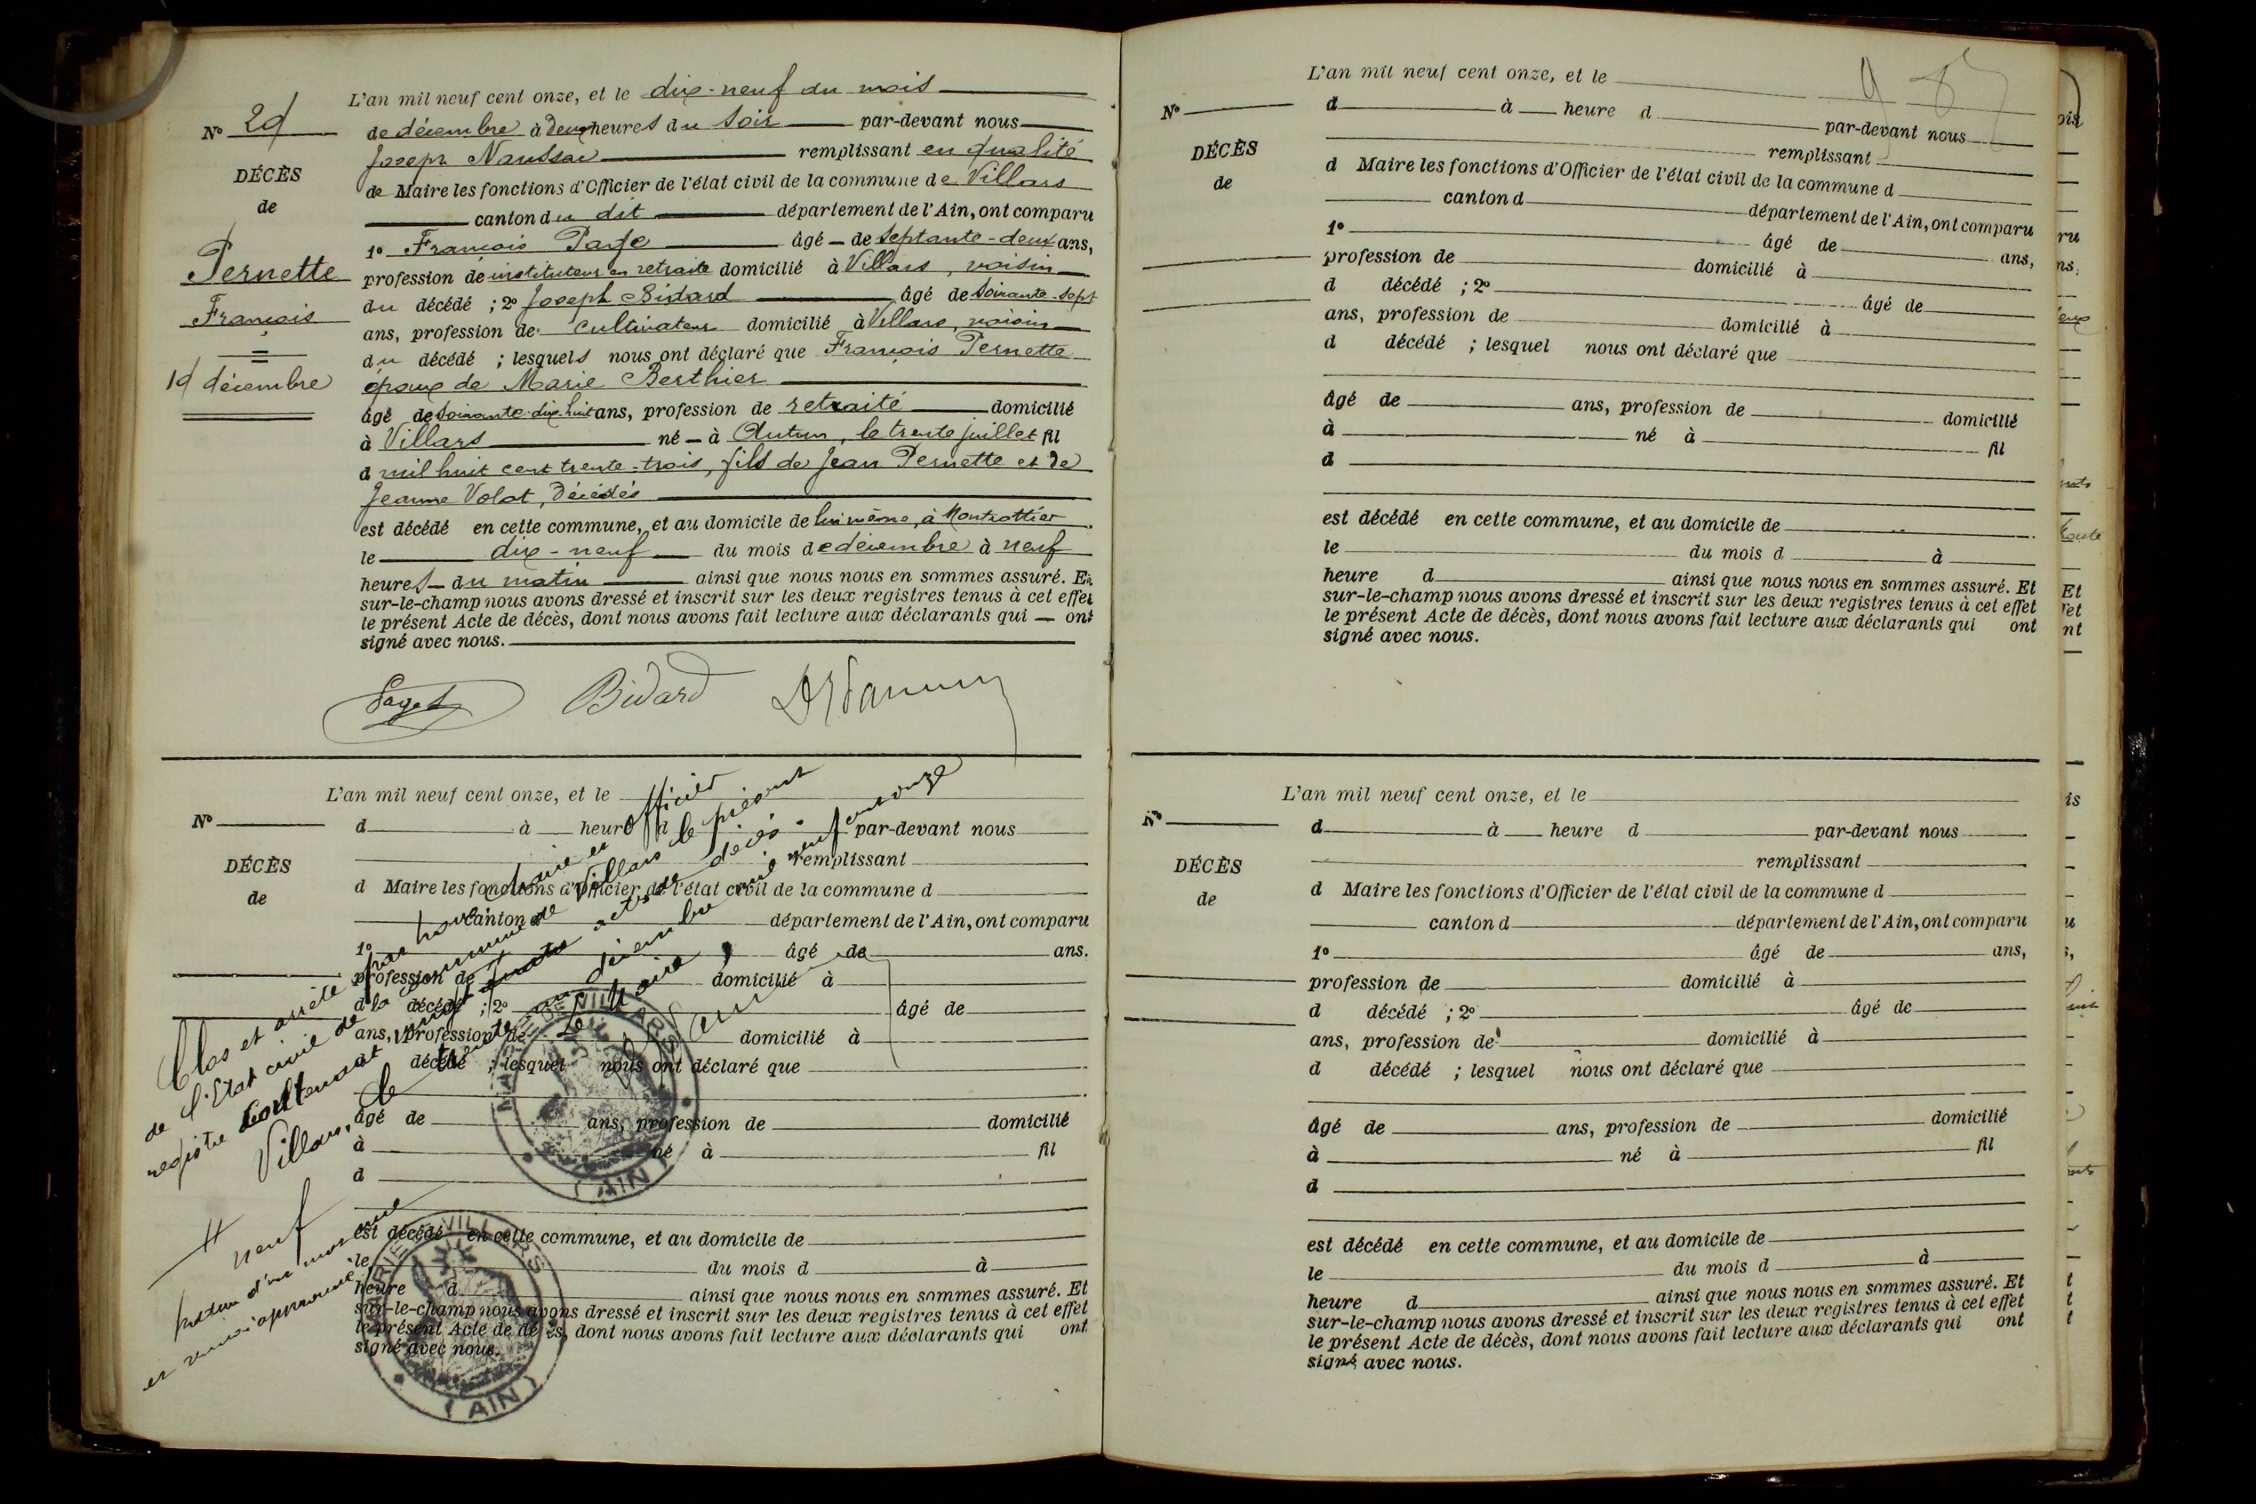 L'an mil neuf cent onze, et le dix-neuf du mois
Nº 29
de décembre à deux heures du soir par-devant nous
Joseph remplissant en qualité
DÉCÈS
de Maire les fonctions d'Officier de l'état civil de la commune de Villars
de
canton du dit département de l'Ain, ont comparu
1º François âgé de septante-deux ans,
Pernette
profession de instituteur en retraite domicilié à Villars, voisin
du décédé ; 2º Joseph Bidard âgé de soixante-sept
François
ans, profession de cultivateur domicilié à Villars, voisin
du décédé ; lesquels nous ont déclaré que François Pernette
19 décembre
époux de Marie Berthier
âgé de soixante-dix-huit ans, profession de retraité domicilié
à Villars né à Autun, le trente juillet fil
d mil huit cent trente-trois, fils de Jean Pernette et de
Jeanne Volat, décédés
est décédé en cette commune, et au domicile de lui même, à Montrottier
le dix-neuf du mois de décembre à neuf
heures du matin ainsi que nous nous en sommes assuré. Et
sur-le-champ nous avons dressé et inscrit sur les deux registres tenus à cet effet
le présent Acte de décès, dont nous avons fait lecture aux déclarants qui ont
signé avec nous.
Paget Bidard
L'an mil neuf cent onze, et le
Nº
d à heure d par-devant nous
remplissant
DÉCÈS
d Maire les fonctions d'Officier de l'état civil de la commune d
de
canton d département de l'Ain, ont comparu
1º âgé de ans.
profession de domicilié à
d décédé ; 2º âgé de
ans, profession de domicilié à
d décédé ; lesquel nous ont déclaré que
âgé de ans, profession de domicilié
à né à fil
d
est décédé en cette commune, et au domicile de
le du mois d à
heure d ainsi que nous nous en sommes assuré. Et
sur-le-champ nous avons dressé et inscrit sur les deux registres tenus à cet effet
le présent Acte de décès, dont nous avons fait lecture aux déclarants qui ont
signé avec nous.
Clos et arrêté par nous, Maire et officier
de l'Etat civil de la commune de Villars le présent
registre contenant vingt # actes de décès.
Villars, le trente un décembre mil neuf cent onze
Le Maire,
# neuf
MAIRIE DE VILLARS
(AIN)
MAIRIE DE VILLARS
(AIN)
987
L'an mil neuf cent onze, et le
Nº
d à heure d par-devant nous
remplissant
DÉCÈS
d Maire les fonctions d'Officier de l'état civil de la commune d
de
canton d département de l'Ain, ont comparu
1º âgé de ans,
profession de domicilié à
d décédé ; 2º âgé de
ans, profession de domicilié à
d décédé ; lesquel nous ont déclaré que
âgé de ans, profession de domicilié
à né à fil
d
est décédé en cette commune, et au domicile de
le du mois d à
heure d ainsi que nous nous en sommes assuré. Et
sur-le-champ nous avons dressé et inscrit sur les deux registres tenus à cet effet
le présent Acte de décès, dont nous avons fait lecture aux déclarants qui ont
signé avec nous.
L'an mil neuf cent onze, et le
Nº
d à heure d par-devant nous
remplissant
DÉCÈS
d Maire les fonctions d'Officier de l'état civil de la commune d
de
canton d département de l'Ain, ont comparu
1º âgé de ans,
profession de domicilié à
d décédé ; 2º âgé de
ans, profession de domicilié à
d décédé ; lesquel nous ont déclaré que
âgé de ans, profession de domicilié
à né à fil
d
est décédé en cette commune, et au domicile de
le du mois d à
heure d ainsi que nous nous en sommes assuré. Et
sur-le-champ nous avons dressé et inscrit sur les deux registres tenus à cet effet
le présent Acte de décès, dont nous avons fait lecture aux déclarants qui ont
signé avec nous.